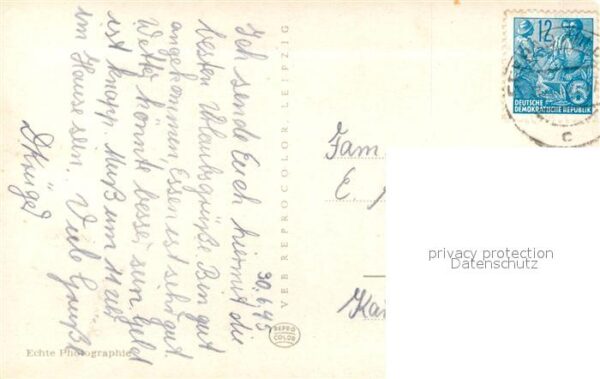 30.6.45
Ich sende Euch hiermit die
besten Urlaubsgrüße. Bin gut
angekommen, Essen ist sehr gut.
Wetter könnte besser sein. Geld
ist knapp. Muß um 11 Uhr
im Hause sein. Viele Grüße
VEB REPROCOLOR LEIPZIG
REPRO
COLOR
Echte Photographie
12
5
DEUTSCHE
DEMOKRATISCHE REPUBLIK
C
Fam
E.
privacy protection
Datenschutz